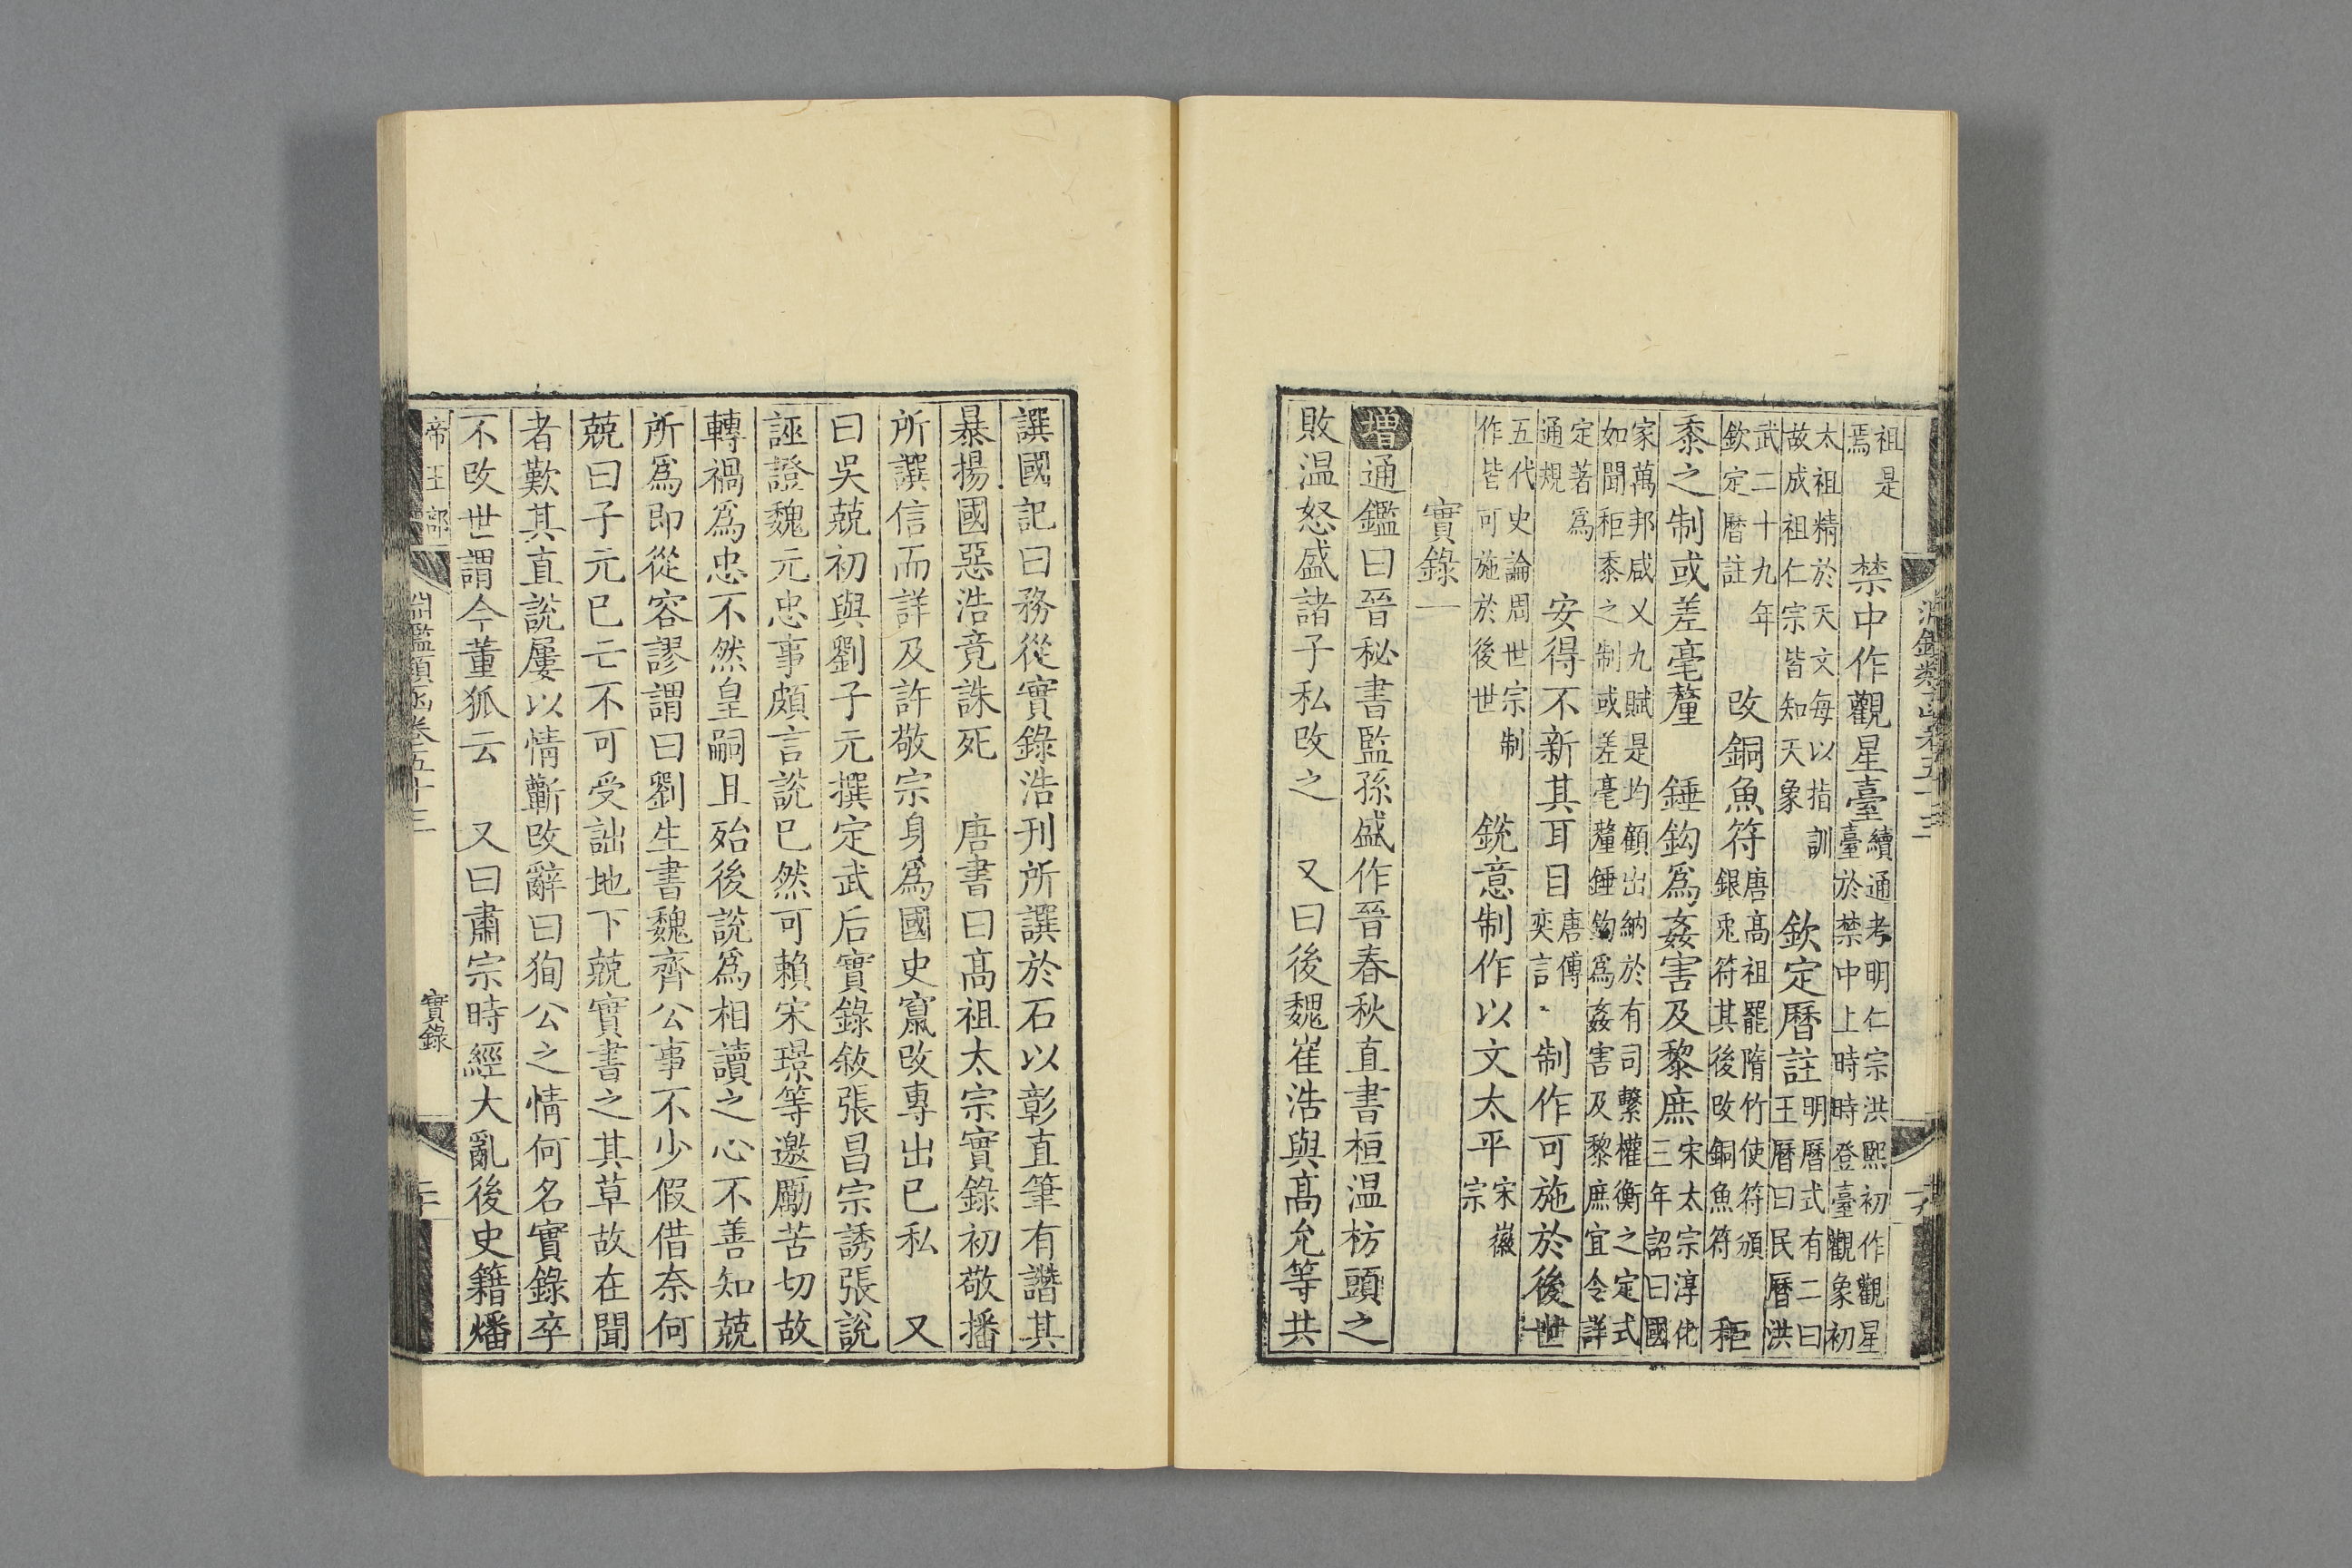 祖是焉　禁中作觀星臺續通考明仁宗洪熙初作觀星臺於禁中上時時登臺觀象初
太祖精於天文每以指訓故成祖仁宗皆知天象　欽定曆註明曆式有二曰王曆曰民曆洪
武二十九年欽定曆註　改銅魚符唐高祖罷隋竹使符頒銀兎符其後改銅魚符　秬
黍之制或差毫釐　錘鈎爲姦害及黎庶宋太宗淳化三年詔曰國
家萬邦咸乂九賦是均顧出納於有司繫權衡之定式如聞秬黍之制或差毫釐錘鈎爲姦害及黎庶宜令詳
定著爲通規　安得不新其耳目唐傅奕言　制作可施於後世
五代史論周世宗制作皆可施於後世　銳意制作以文太平宋徽宗
實錄一
增通鑑曰晉秘書監孫盛作晉春秋直書桓温枋頭之
敗温怒盛諸子私改之　又曰後魏崔浩與高允等共
譔國記曰務從實錄浩刊所譔於石以彰直筆有譖其
暴揚國惡浩竟誅死　唐書曰高祖太宗實錄初敬播
所譔信而詳及許敬宗身爲國史竄改專出已私　又
曰吳兢初與劉子元撰定武后實錄敘張昌宗誘張説
誣證魏元忠事頗言説已然可賴宋璟等邀勵苦切故
轉禍爲忠不然皇嗣且殆後説爲相讀之心不善知兢
所爲即從容謬謂曰劉生書魏齊公事不少假借奈何
兢曰子元已亡不可受詘地下兢實書之其草故在聞
者歎其直説屢以情蘄改辭曰狥公之情何名實錄卒
不改世謂今董狐云　又曰肅宗時經大亂後史籍燔
帝王部　淵鑑類函卷五十三　實錄